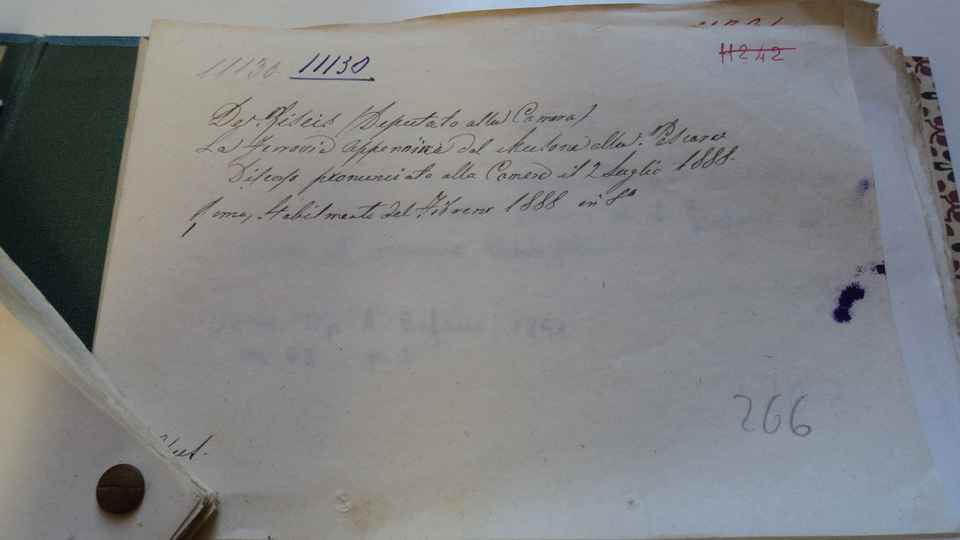 11130 11130
H242
De Riseis (Deputato alla Camera)
La Ferrovia appennina dal Metauro alla Pescara
Discorso pronunciato alla Camera il 2 Luglio 1888.
Roma, Stabilimento del Fibreno 1888 in 8°
266